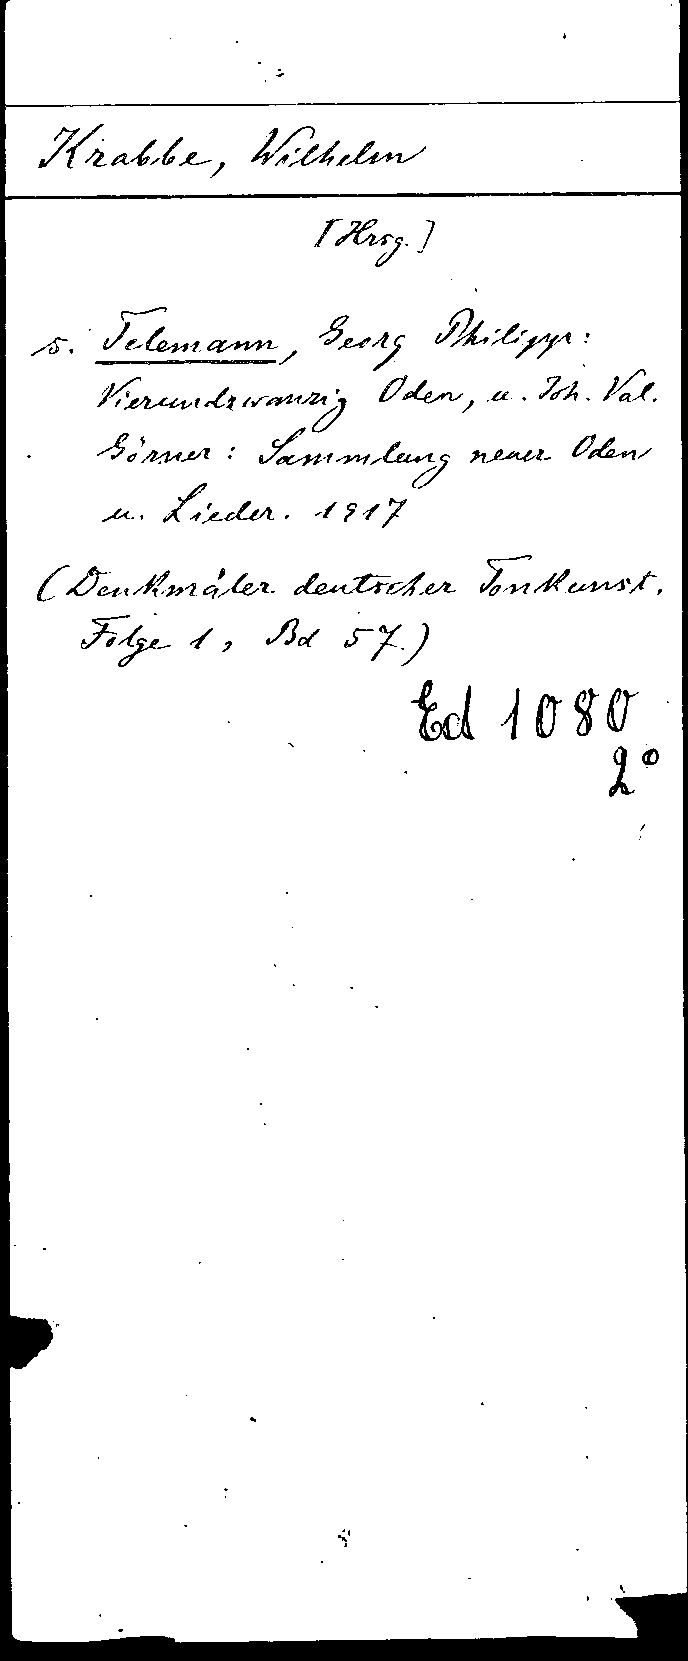 Krabbe, Wilhelm
[Hrsg.]
s. Telemann, Georg Philipp:
Vierundzwanzig Oden, u. Joh. Val.
Görner: Sammlung neuer Oden
u. Lieder. 1917
(Denkmäler deutscher Tonkunst.
Folge 1, Bd 57.)
Ed 1080
2°